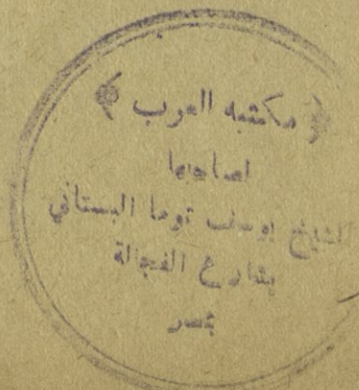 ﴿ مكتبه العرب ﴾
لصاحبها
الشيخ يوسف توما البستاني
بشارع الفجالة
بمصر